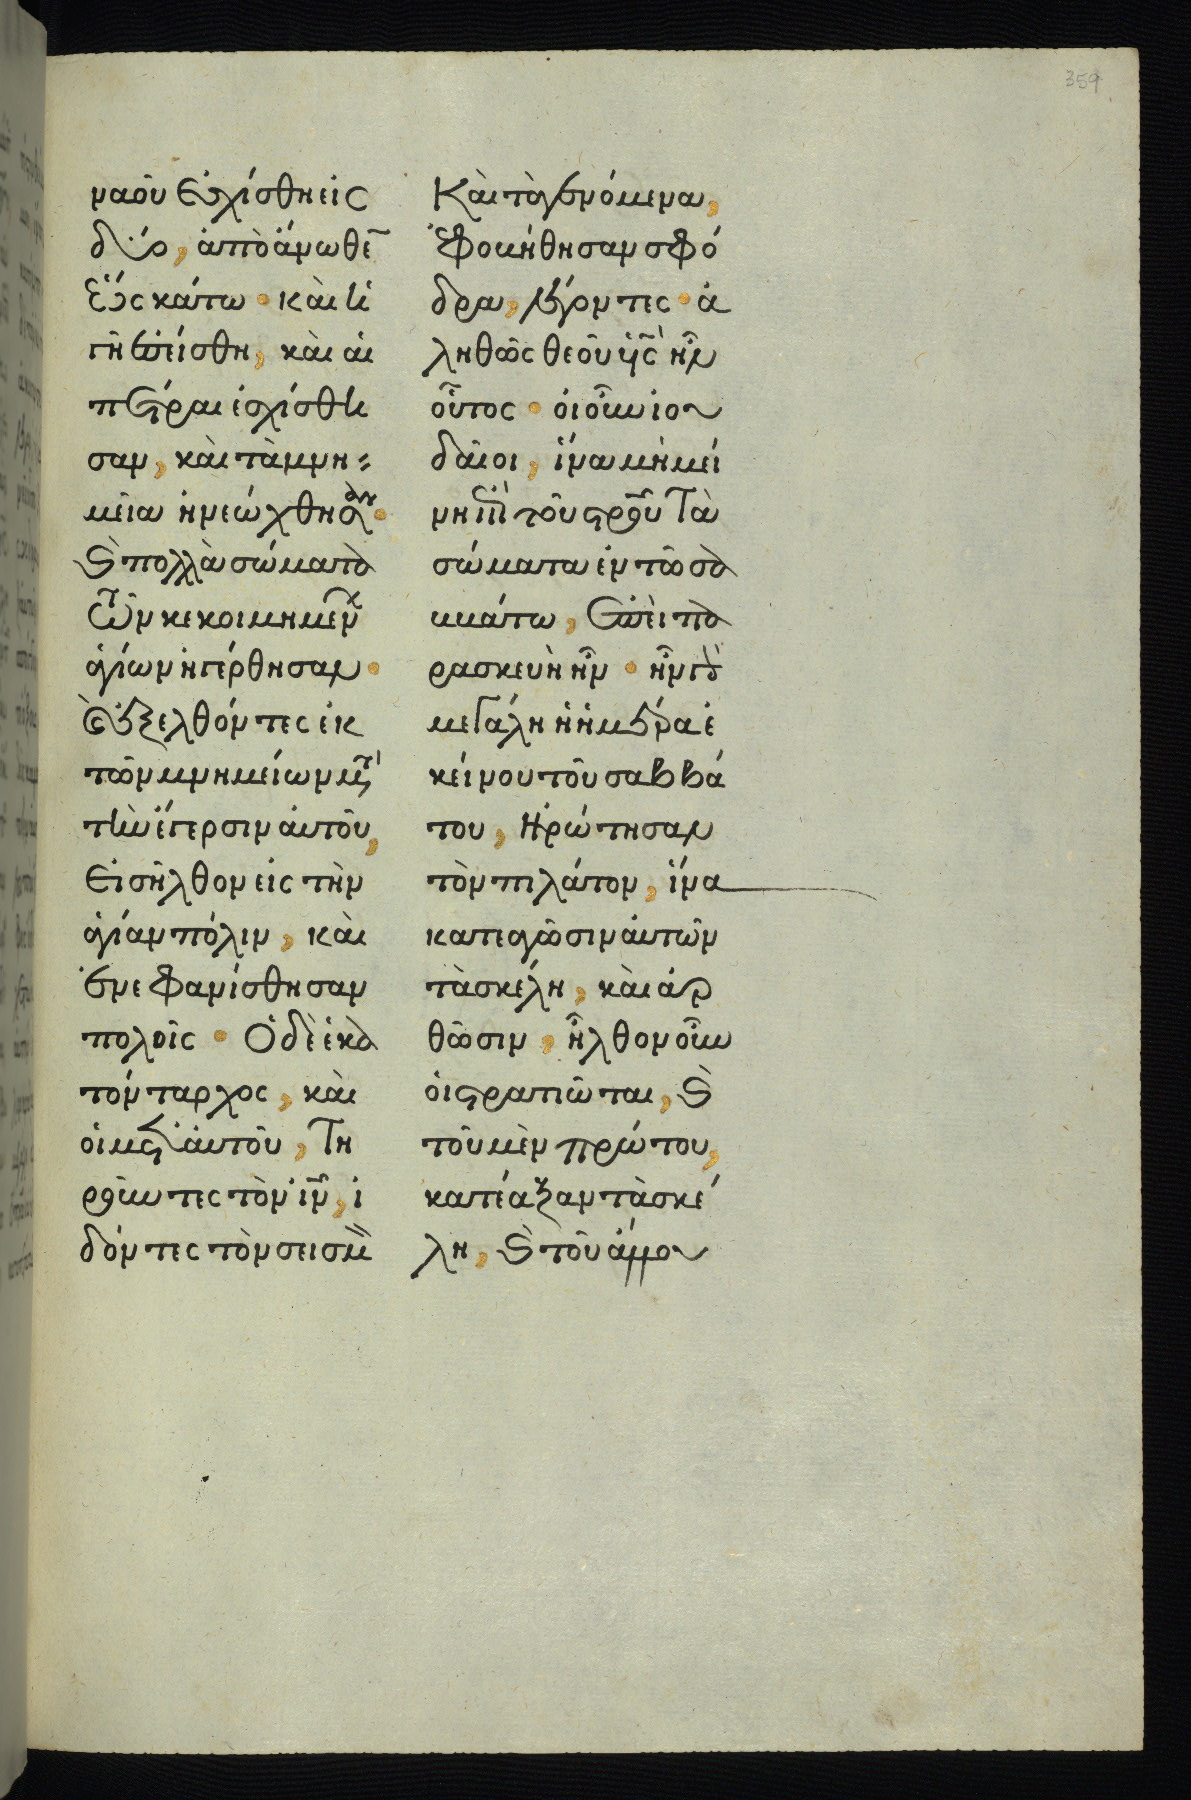 359
ναοῦ ἐσχίσθη εἰς
δύο, ἀπὸ ἄνωθε̄
ἕως κάτω · καὶ ἡ
γῆ ἐσείσθη, καὶ αἱ
πέτραι ἐσχίσθη
σαν, καὶ τὰ μνη=
μεῖα ἠνεώχθησαν ·
κ̀ πολλὰ σώματα
τῶν κεκοιμημέν
ἁγίων ἠγέρθησαν ·
κ̀ ἐξελθόντες ἐκ
τῶν μνημείων μτ̀
τὴν ἔγερσιν αὐτοῦ,
εἰσῆλθον εἰς τὴν
ἁγίαν πόλιν, καὶ
ἐνεφανίσθησαν
πολοῖς · Ὁ δὲ ἑκα
τόνταρχος, καὶ
οἱ μετ' αὐτοῦ, τη
ροῦντες τὸν ιν̄, ἰ
δόντες τὸν σεισμὸ
Καὶ τὰ γενόμενα,
ἐφοβήθησαν σφό
δρα, λέγοντες · ἀ
ληθῶς θεοῦ υς̄ ἦν
οὗτος · οἱ οὖν ἰου
δαῖοι, ἵνα μὴ μεί
νη ἐπὶ τοῦ στρου̃ τὰ
σώματα ἐν τῶ σα
ββάτω, ἐπεὶ πα
ρασκευὴ ἦν · ἦν γὰρ
μεγάλη ἡ ἡμέρα ἐ
κείνου τοῦ σαββά
του, ἠρώτησαν
τὸν πιλάτον, ἵνα
κατεαγῶσιν αὐτῶν
τὰ σκέλη, καὶ ἀρ
θῶσιν, ἦλθον οὖν
οἱ στρατιῶται, κ̀
τοῦ μὲν πρώτου,
κατέαξαν τὰ σκέ
λη, κ̀ τοῦ ἄλλου